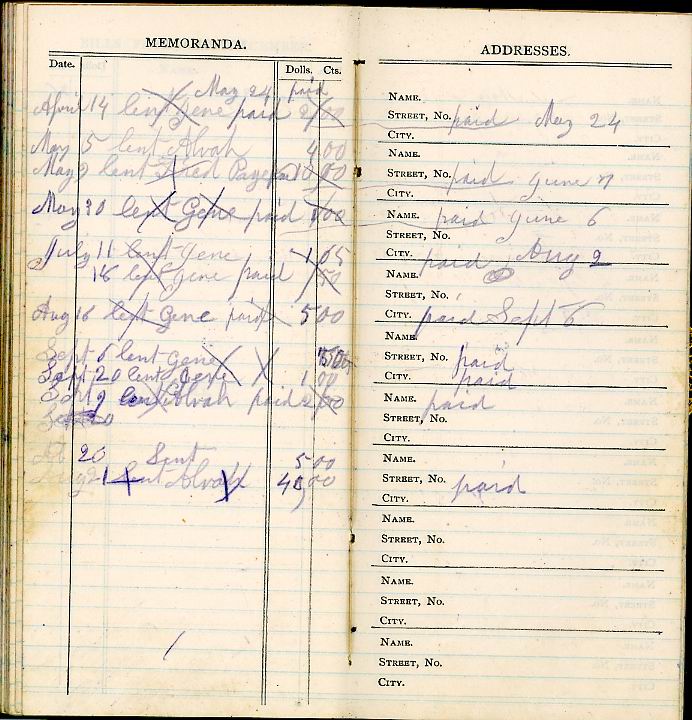 MEMORANDA.
Date. Dolls. Cts.
May 24 paid
April 14 lent Gene paid 2/00
May 5 lent Alvah 4,00
May 9 lent Fred 10,00
May 30 lent Gene paid 1,00
July 11 lent Gene 1,05
16 lent Gene paid
Aug 16 lent Gene paid 5,00
Sept 6 lent Gene X
Sept 20 lent Gene X 1,00
Oct 9 lent Alvah paid 2/00
20 Sent 5,00
21 lent Alvah 40,00
ADDRESSES.
NAME.
STREET, NO. paid May 24
CITY.
NAME.
STREET, NO. paid June 7
CITY.
NAME. paid June 6
STREET, NO.
CITY. paid Aug 2
NAME.
STREET, NO.
CITY. paid Sept 6
NAME.
STREET, NO. paid
CITY. paid
NAME. paid
STREET, NO.
CITY.
NAME.
STREET, NO. paid
CITY.
NAME.
STREET, NO.
CITY.
NAME.
STREET, NO.
CITY.
NAME.
STREET, NO.
CITY.